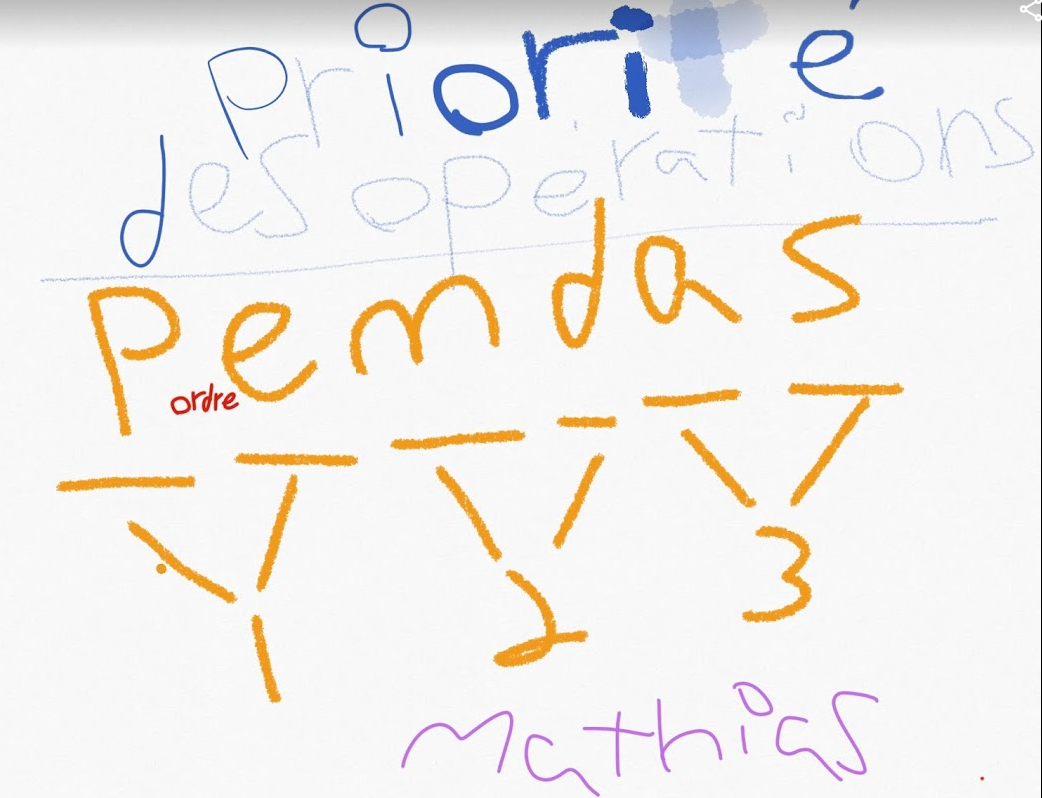 Priorité
des operations
Pemdas
ordre
1 2 3
Mathias